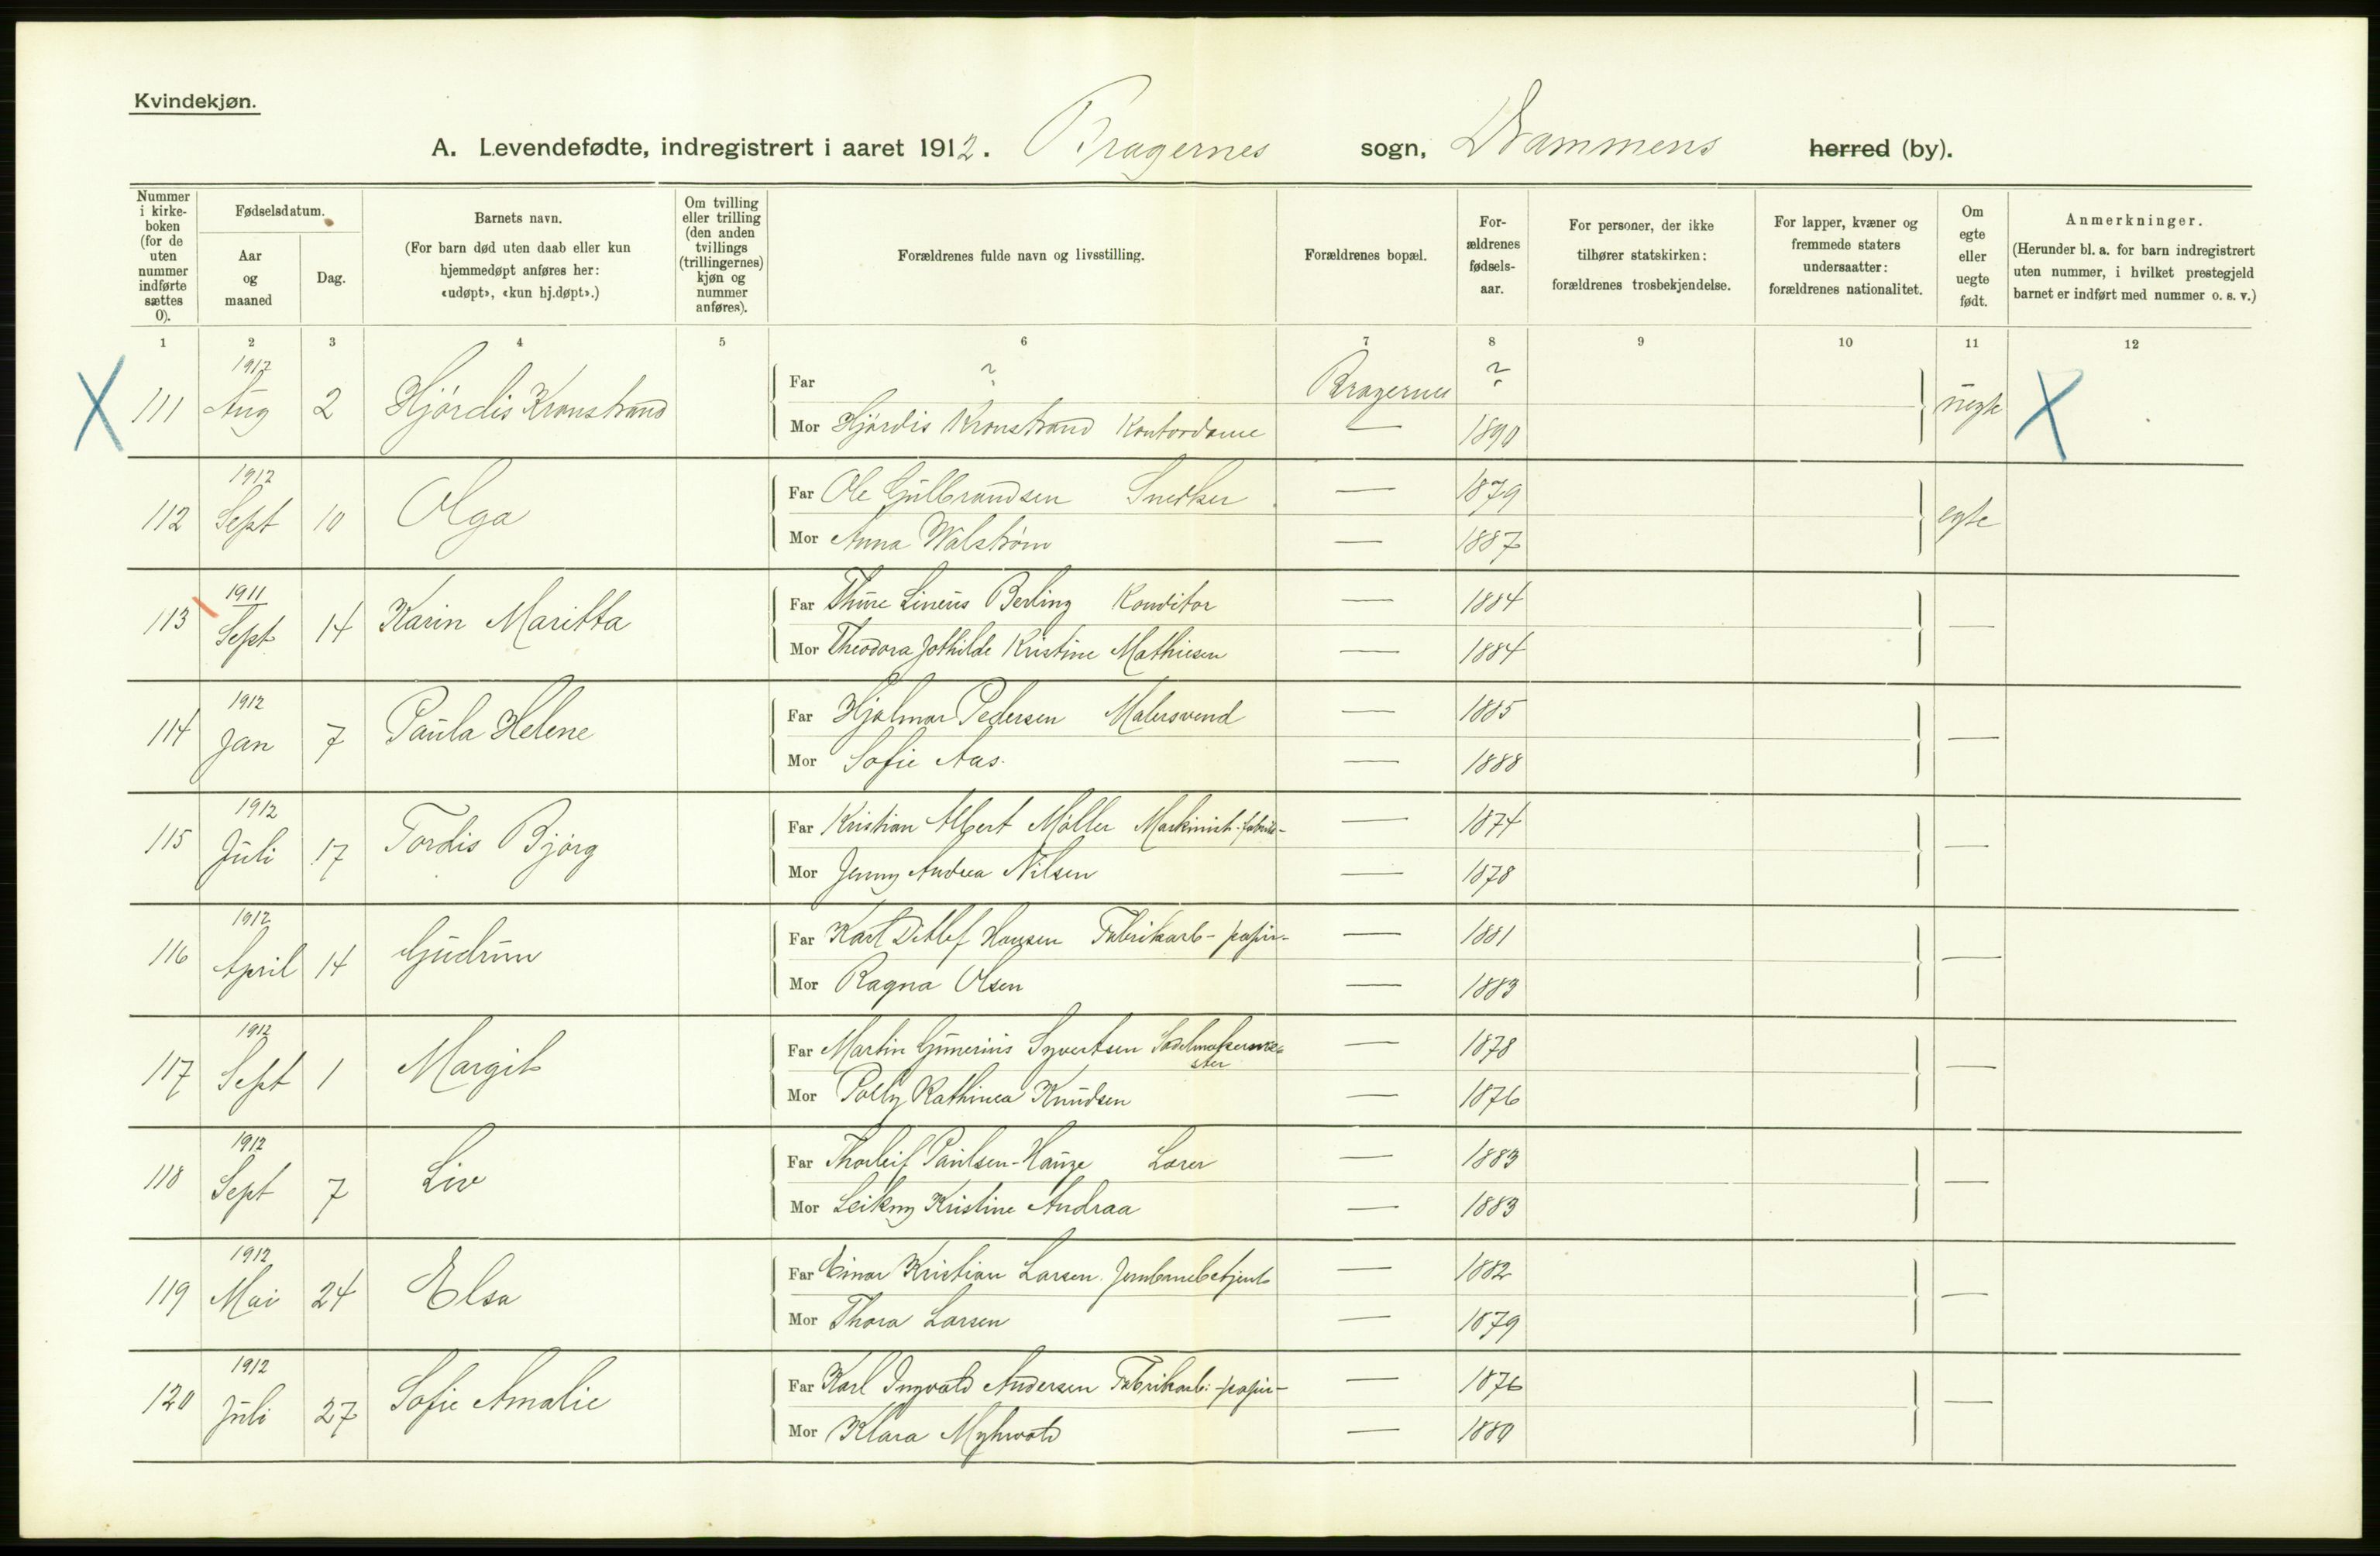 Kvindekjøn.
A. Levendefødte, indregistrert i aaret 1912. Bragernes sogn, Drammens herred (by).
Nummer i kirkeboken (for de uten nummer indførte sættes 0).
Fødselsdatum.
Aar og maaned
Dag.
Barnets navn.
(For barn død uten daab eller kun hjemmedøpt anføres her: «udøpt», «kun hj.døpt».)
Om tvilling eller trilling (den anden tvillings (trillingernes) kjøn og nummer anføres).
Forældrenes fulde navn og livsstilling.
Forældrenes bopæl.
Forældrenes fødselsaar.
For personer, der ikke tilhører statskirken: forældrenes trosbekjendelse.
For lapper, kvæner og fremmede staters undersaatter: forældrenes nationalitet.
Om egte eller uegte født.
Anmerkninger.
(Herunder bl. a. for barn indregistrert uten nummer, i hvilket prestegjeld barnet er indført med nummer o. s. v.)
1 2 3 4 5 6 7 8 9 10 11 12
X 111 1912 Aug 2 Hjördis Kronstrand Far ? Bragernes ? uegte X
Mor Hjördis Kronstrand Kontordame — 1890
112 1912 Sept 10 Olga Far Ole Gulbrandsen Snedker — 1879 egte
Mor Anna Walstrøm — 1887
113 1911 Sept 14 Karin Maritta Far Thure Lineus Berling Konditor — 1884 —
Mor Theodora Jothilde Kristine Mathiesen — 1884
114 1912 Jan 7 Paula Helene Far Hjalmar Pedersen Malersvend — 1885 —
Mor Sofie Aas. — 1888
115 1912 Juli 17 Tordis Bjørg Far Kristian Albert Møller Maskinist-fabrik- — 1874 —
Mor Jenny Andrea Nilsen — 1878
116 1912 April 14 Gudrun Far Karl Ditlef Hansen Fabrikarb- papir- — 1881 —
Mor Ragna Olsen — 1883
117 1912 Sept 1 Margit Far Martin Gunerius Syvertsen Sadelmakermester — 1878 —
Mor Polly Kathinca Knudsen — 1876
118 1912 Sept 7 Liv Far Thorleif Paulsen-Hauge Lærer — 1883 —
Mor Leikny Kristine Andraa — 1883
119 1912 Mai 24 Elsa Far Einar Kristian Larsen. Jernbanebetjent — 1882 —
Mor Thora Larsen — 1879
120 1912 Juli 27 Sofie Amalie Far Karl Ingvald Andersen Fabrikarb: -papir- — 1876 —
Mor Klara Myhrvold — 1880